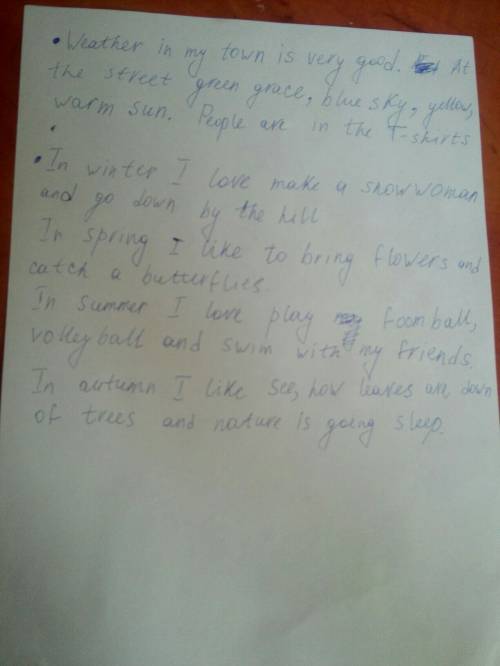 • Weather in my town is very good. At
the street green grace, blue sky, yellow,
warm sun. People are in the T-shirts
• In winter I love make a snowwoman
and go down by the hill
In spring I like to bring flowers and
catch a butterflies.
In summer I love play foomball,
volleyball and swim with my friends.
In autumn I like see, how leaves are down
of trees and nature is going sleep.